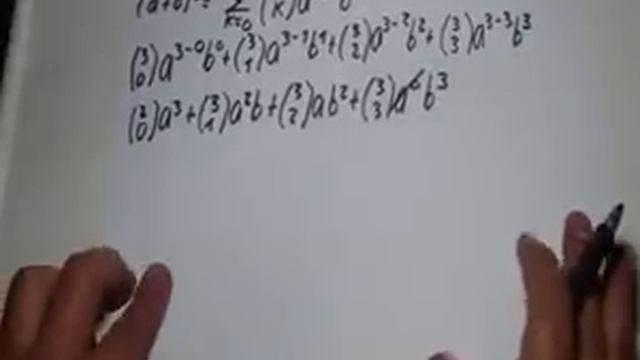 (a+b) = ∑ k=0 (k)a b
(3 0)a^3-0 b^0+(3 1)a^3-1 b^1+(3 2)a^3-2 b^2+(3 3)a^3-3 b^3
(2 0)a^3+(3 1)a^2b+(3 2)ab^2+(3 3)a^0 b^3